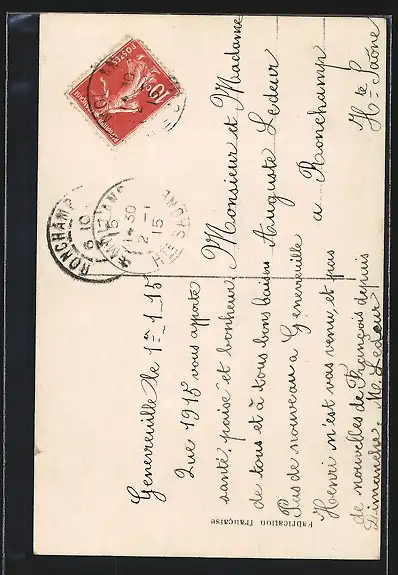 Genevreuille le 1er_1_15
Que 1915 vous apporte
santé, paix et bonheur,
de tous et à tous bons baisers
Pas de nouveau a Genevreuille
Henri n'est pas venu, et pas
de nouvelles de François depuis
Dimanche. M. Ledeur
Monsieur et Madame
Auguste Ledeur
a Ronchamp
Hte Saône
Fabrication française
POSTES
10
RONCHAMP
6 10
15
14 30
2 - 1
15
Hte SAÔNE